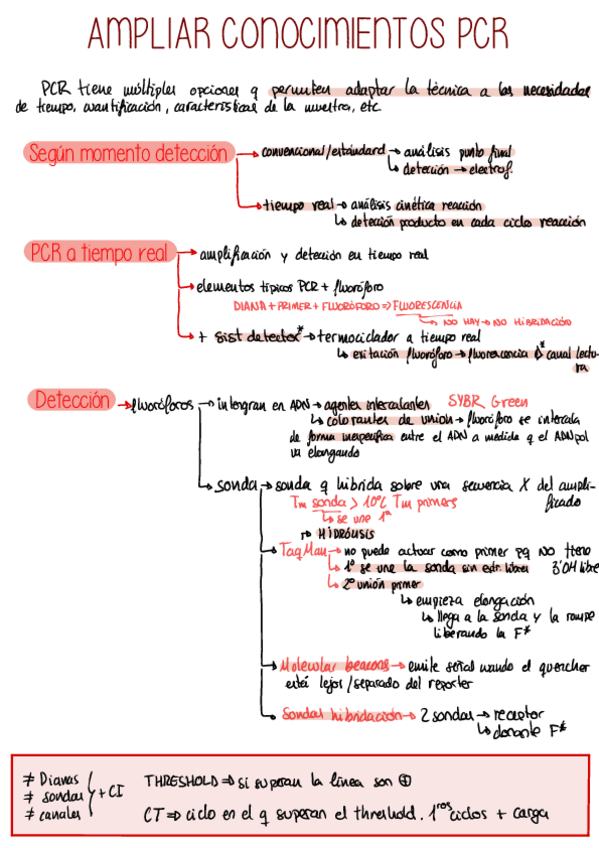 AMPLIAR CONOCIMIENTOS PCR
PCR tiene múltiples opciones q permiten adaptar la técnica a las necesidades
de tiempo, cuantificación, características de la muestra, etc.
Según momento detección → convencional/estándard → análisis punto final
↳ detección → electrof.
→ tiempo real → análisis cinética reacción
↳ detección producto en cada ciclo reacción
PCR a tiempo real → amplificación y detección en tiempo real
→ elementos típicos PCR + fluoróforo
DIANA + PRIMER + FLUORÓFORO ⇒ FLUORESCENCIA
↳ NO HAY → NO HIBRIDACIÓN
→ + sist detector* → termociclador a tiempo real
↳ exitación fluoróforo → fluorescencia → canal lectu-
ra
Detección → fluoróforos → intengran en ADN → agentes intercalantes SYBR Green
↳ colorantes de unión → fluoróforo se intercala
de forma inespecífica entre el ADN a medida q el ADNpol
va elongando
→ sonda → sonda q hibrida sobre una secuencia X del ampli-
ficado
Tm sonda > 10ºC Tm primers
↳ se une 1ª
→ HIDRÓLISIS
→ TaqMan → no puede actuar como primer pq NO tiene
3'OH libre
↳ 1º se une la sonda sin extr. libres
↳ 2º unión primer
↳ empieza elongación
↳ llega a la sonda y la rompe
liberando la F*
→ Molecular beacons → emite señal cuando el quencher
está lejos/separado del reporter
→ Sondas hibridación → 2 sondas → receptor
↳ donante F*
≠ Dianas
≠ sondas + CI
≠ canales
THRESHOLD ⇒ si superan la línea son ⊕
CT ⇒ ciclo en el q superan el threshold. 1ros ciclos + carga